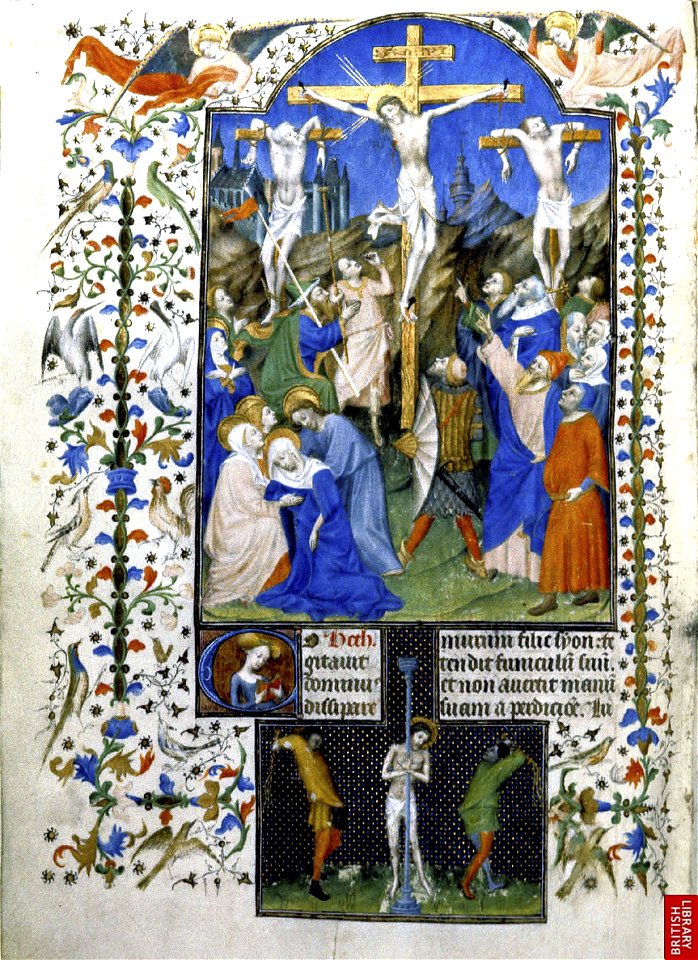 Co Heth.
gitauit
dominu
dissipare
murum filie syon: te
tendit funiculū suū.
et non auertit manū
suam a perdicōe. Lu
BRITISH
LIBRARY